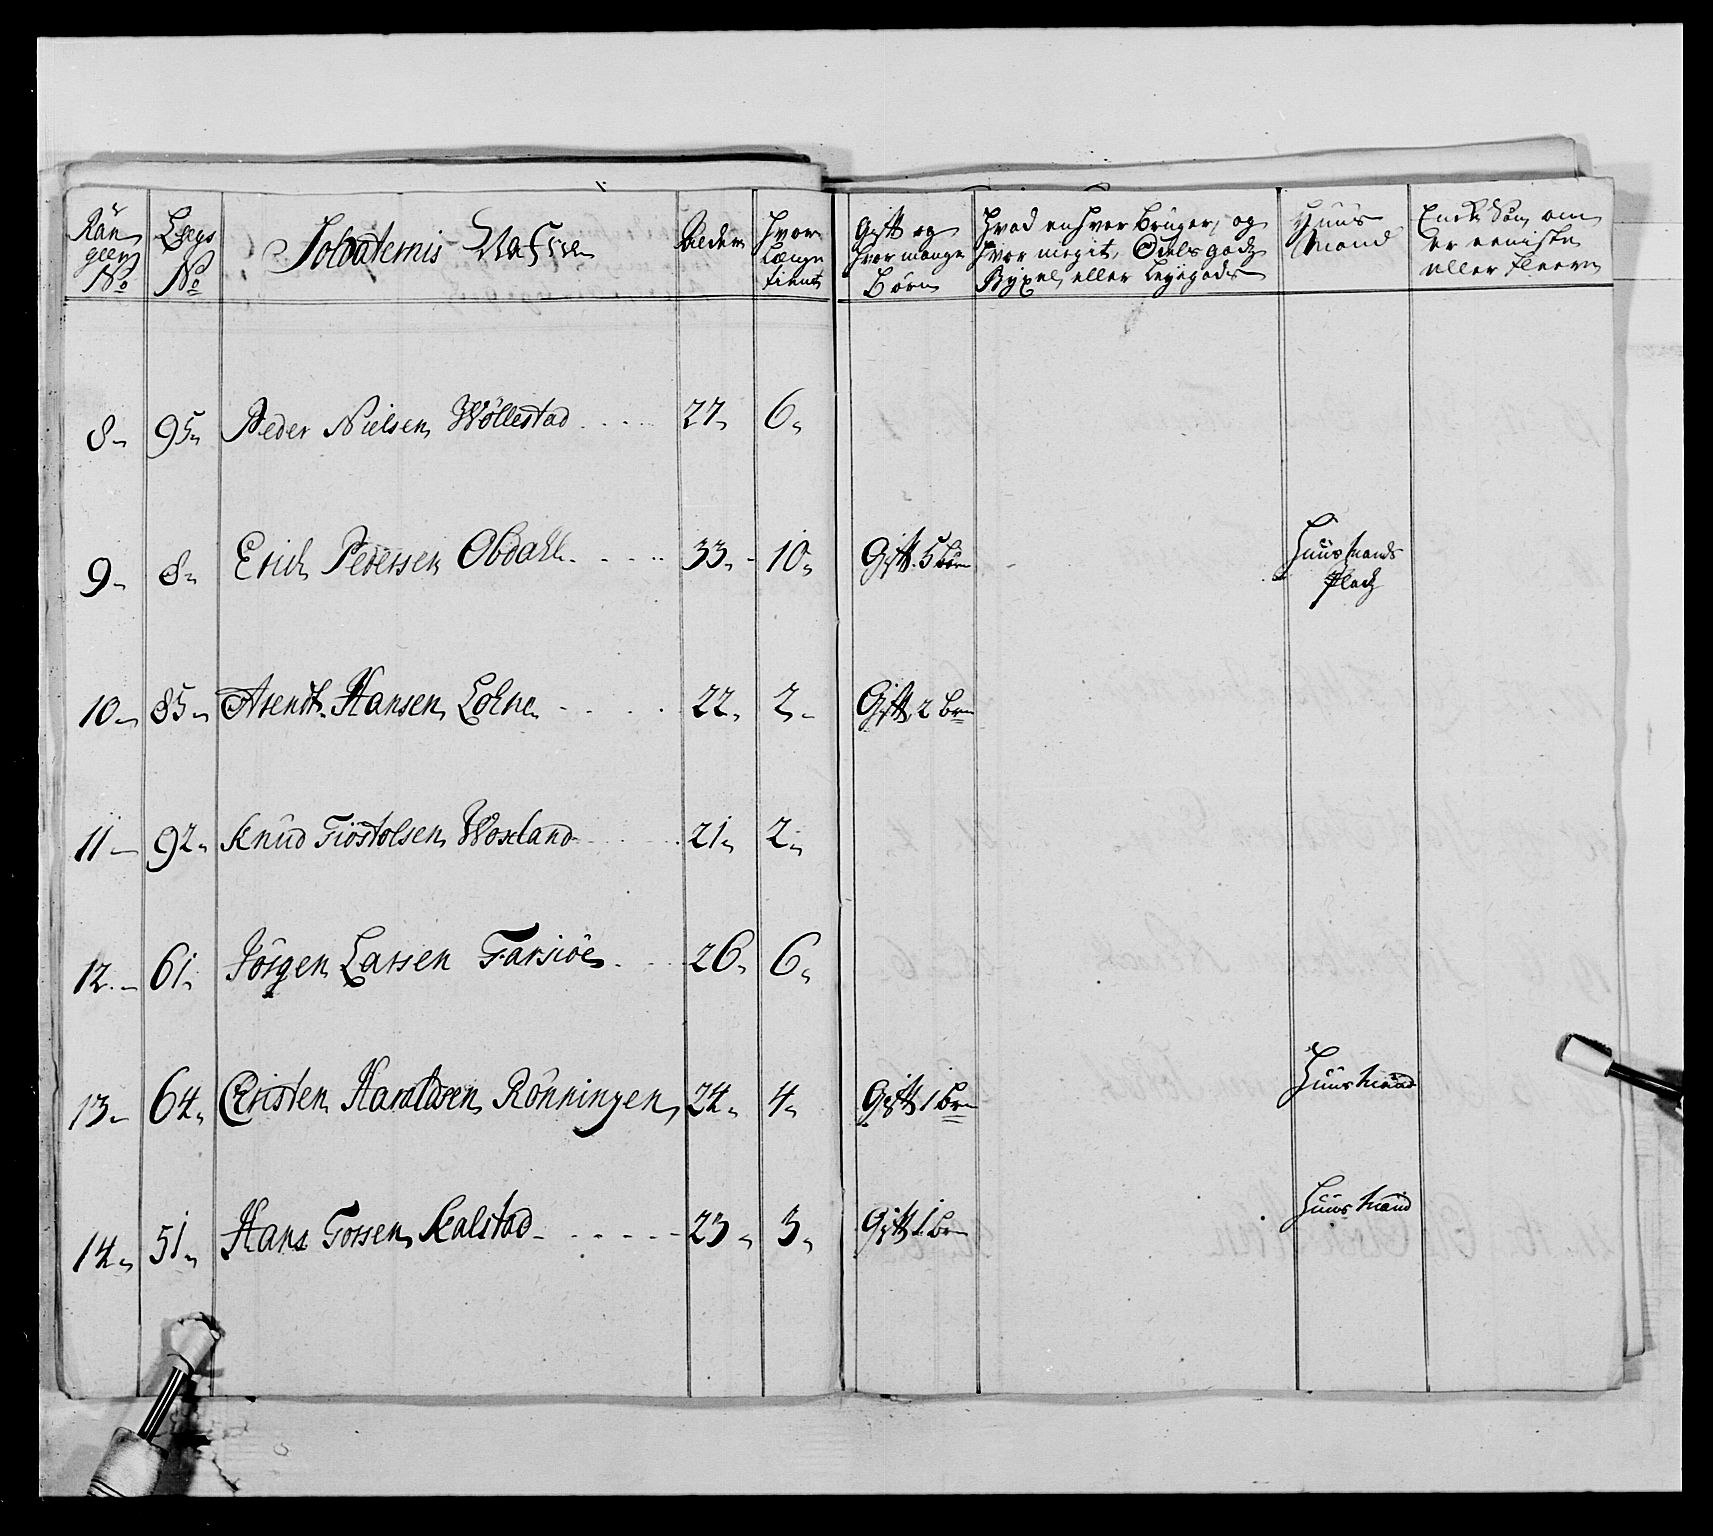 Rän geer No | Lægs No | Soldaternis Nafne | Alder | Hvor Længe tient | Gift og hvor mange Børn | Hvad enhver Bruger, og hvor megit, Odels godtz Byxel, eller Leyegods | Huus Mand | Enckte Søn, om er eeniste eller fleere
8 | 95 | Peder Nielsen Wøllestad | 27 | 6
9 | 8 | Erich Pedersen Obdahl | 33 | 10 | Gift 5 børn | Huusmands Pladtz
10 | 85 | Arendt Hansen Lohne | 22 | 2 | Gift, 2 brn
11 | 92 | Knud Tiostolsen Woxland | 21 | 2
12 | 61 | Jörgen Larsen Farsiøe | 26 | 6
13 | 64 | Christen Haraldsen Rönningen | 24 | 4 | Gift 1 brn | Huusmand
14 | 51 | Hans Torsen Kalstad | 23 | 3 | Gift 1 brn | Huusmand